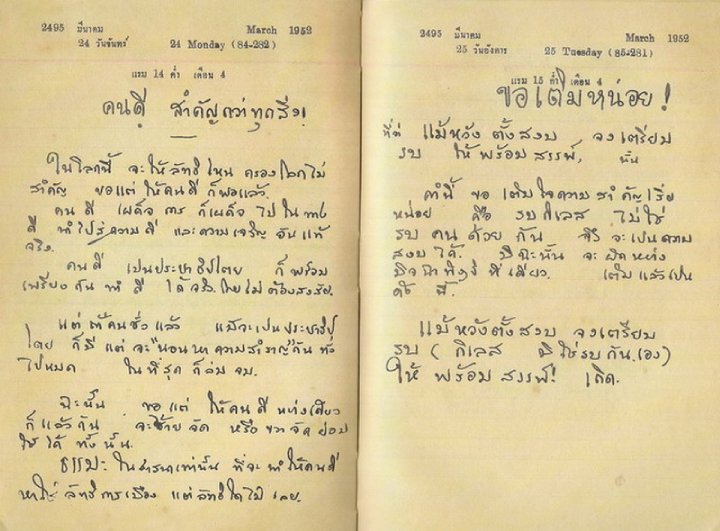 2495 มีนาคม March 1952
24 วันจันทร์ 24 Monday (84-282)
แรม 14 ค่ำ เดือน 4
คนดี สำคัญกว่าทุกสิ่ง!
ในโลกนี้ จะให้ลัทธิไหน ครองโลกไม่
สำคัญ ขอแต่ ให้คนดี ก็พอแล้ว.
คนดี เผด็จการ ก็เผด็จ ไปในทาง
ดี นำไปสู่ความดี และความเจริญ อันแท้
จริง.
คนดี เป็นประชาธิปไตย ก็พร้อม
เพรียงกัน ทำ ดี ได้จริง.โดยไม่ต้องสงสัย.
แต่ถ้าคนชั่วแล้ว แม้จะเป็นประชาธิป
ไตย ก็มี แต่จะ "นอนหาความสำราญ" กัน ทั้ง
ไปหมด ในที่สุด ก็ล่มจม.
ฉะนั้น ขอแต่ ให้คนดี อย่างเดียว
ก็แล้วกัน จะซ้ายจัด หรือขวาจัด ย่อม
ใช้ได้ ทั้งนั้น.
ธรรมะ ในศาสนาเท่านั้น ที่จะ ทำให้คนดี
หาใช่ ลัทธิการเมือง แต่ลัทธิใดไม่ เลย.
2495 มีนาคม March 1952
25 วันอังคาร 25 Tuesday (85-281)
แรม 15 ค่ำ เดือน 4
ขอเติมหน่อย!
ที่ว่า แม้หวัง ตั้งสงบ จงเตรียม
รบ ให้พร้อม สรรพ์, นั้น
คำนี้ ขอ เติมใจความสำคัญ
หน่อย คือ รบกิเลส ไม่ใช่
รบ คน ด้วย กัน จึง จะเป็นความ
สงบได้. มิฉะนั้น จะ
ทีเดียว. เติมแล้วเป็น
ดัง นี้.
แม้หวังตั้งสงบ จงเตรียม
รบ (กิเลส มิใช่รบกันเอง)
ให้ พร้อม สรรพ์! เถิด.